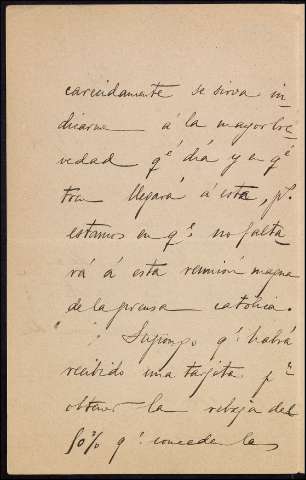 carecidamente se sirva in-
dicarme á la mayor bre-
vedad qe día y en qe
tren llegará á esta, ps.
estamos en qe. no falta-
rá á esta reunión magna
de la prensa católica.
Supongo qe. habrá
recibido una tarjeta pa
obtener la rebaja del
50% qe. conceden las